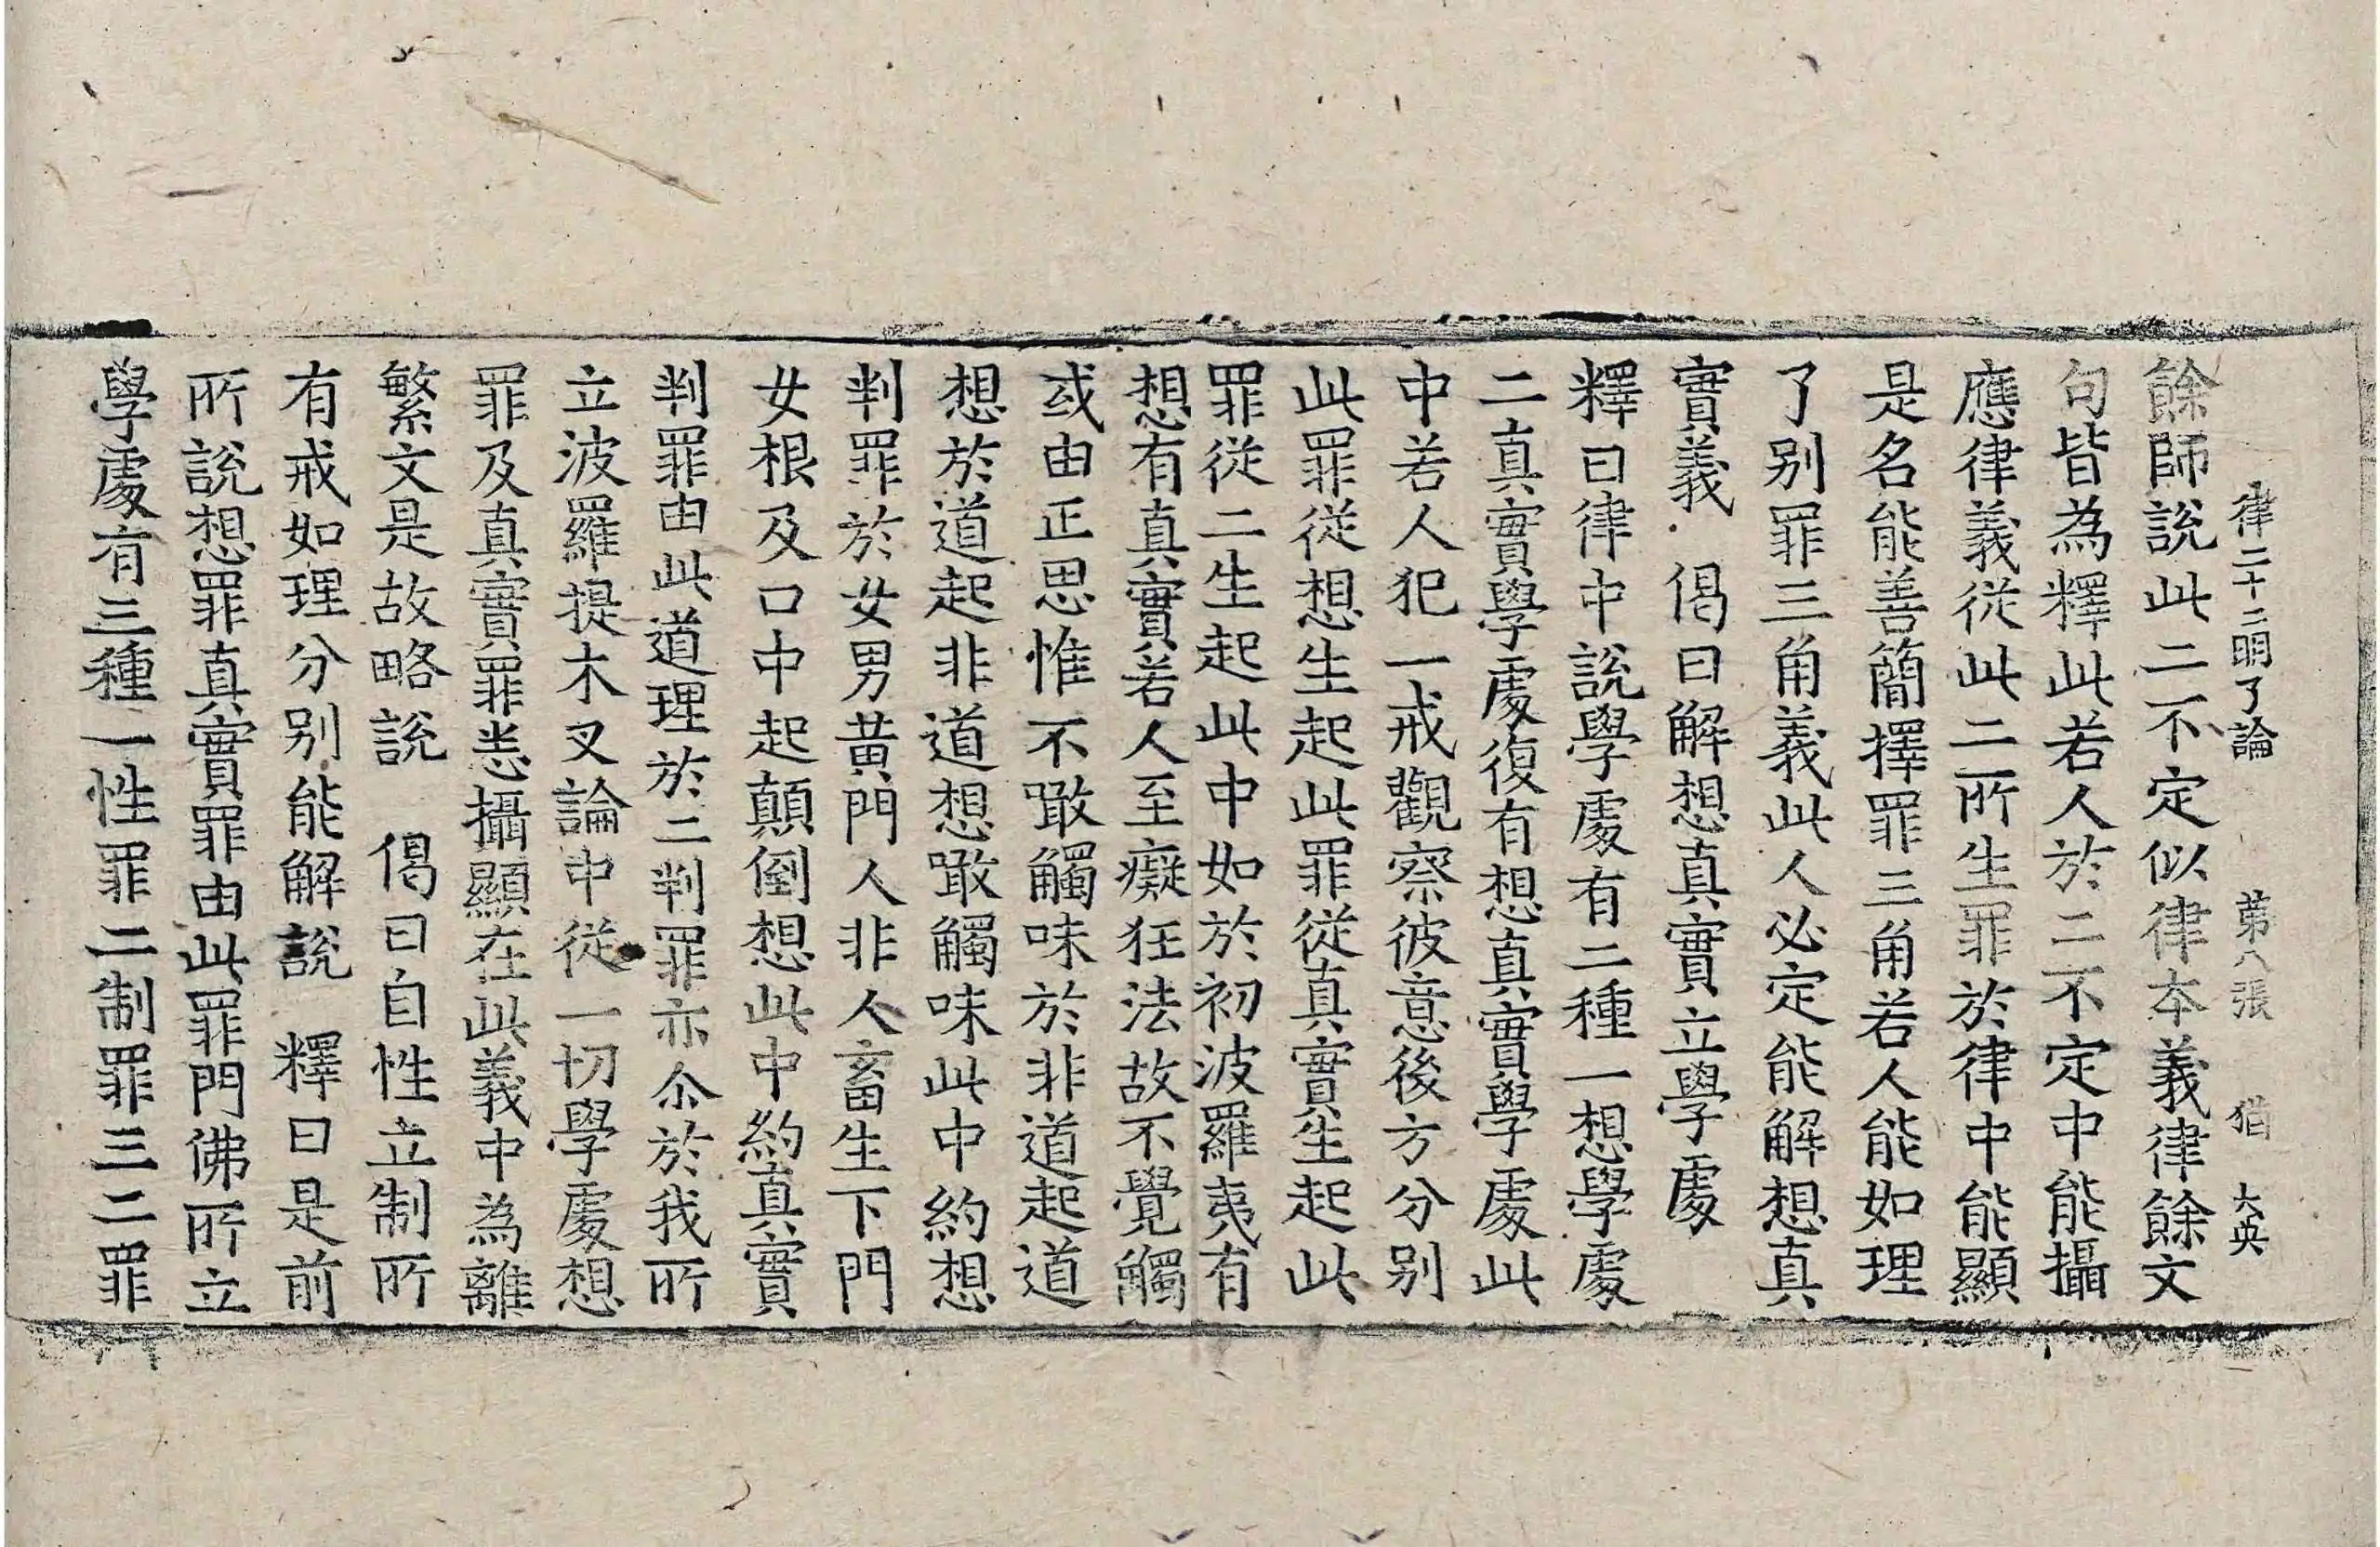 律二十二明了論 第八張 猶 大英
餘師說此二不定似律本義律餘文
句皆為釋此若人於二不定中能攝
應律義從此二所生罪於律中能顯
是名能善簡擇罪三角若人能如理
了别罪三角義此人必定能解想真
實義 偈曰解想真實立學處
釋曰律中說學處有二種一想學處
二真實學處復有想真實學處此
中若人犯一戒觀察彼意後方分别
此罪從想生起此罪從真實生起此
罪從二生起此中如於初波羅夷有
想有真實若人至癡狂法故不覺觸
或由正思惟不噉觸味於非道起道
想於道起非道想噉觸味此中約想
判罪於女男黄門人非人畜生下門
女根及口中起顛倒想此中約真實
判罪由此道理於二判罪亦尒於我所
立波羅提木叉論中從一切學處想
罪及真實罪悉攝顯在此義中為離
繁文是故略說 偈曰自性立制所
有戒如理分别能解說 釋曰是前
所說想罪真實罪由此罪門佛所立
學處有三種一性罪二制罪三二罪